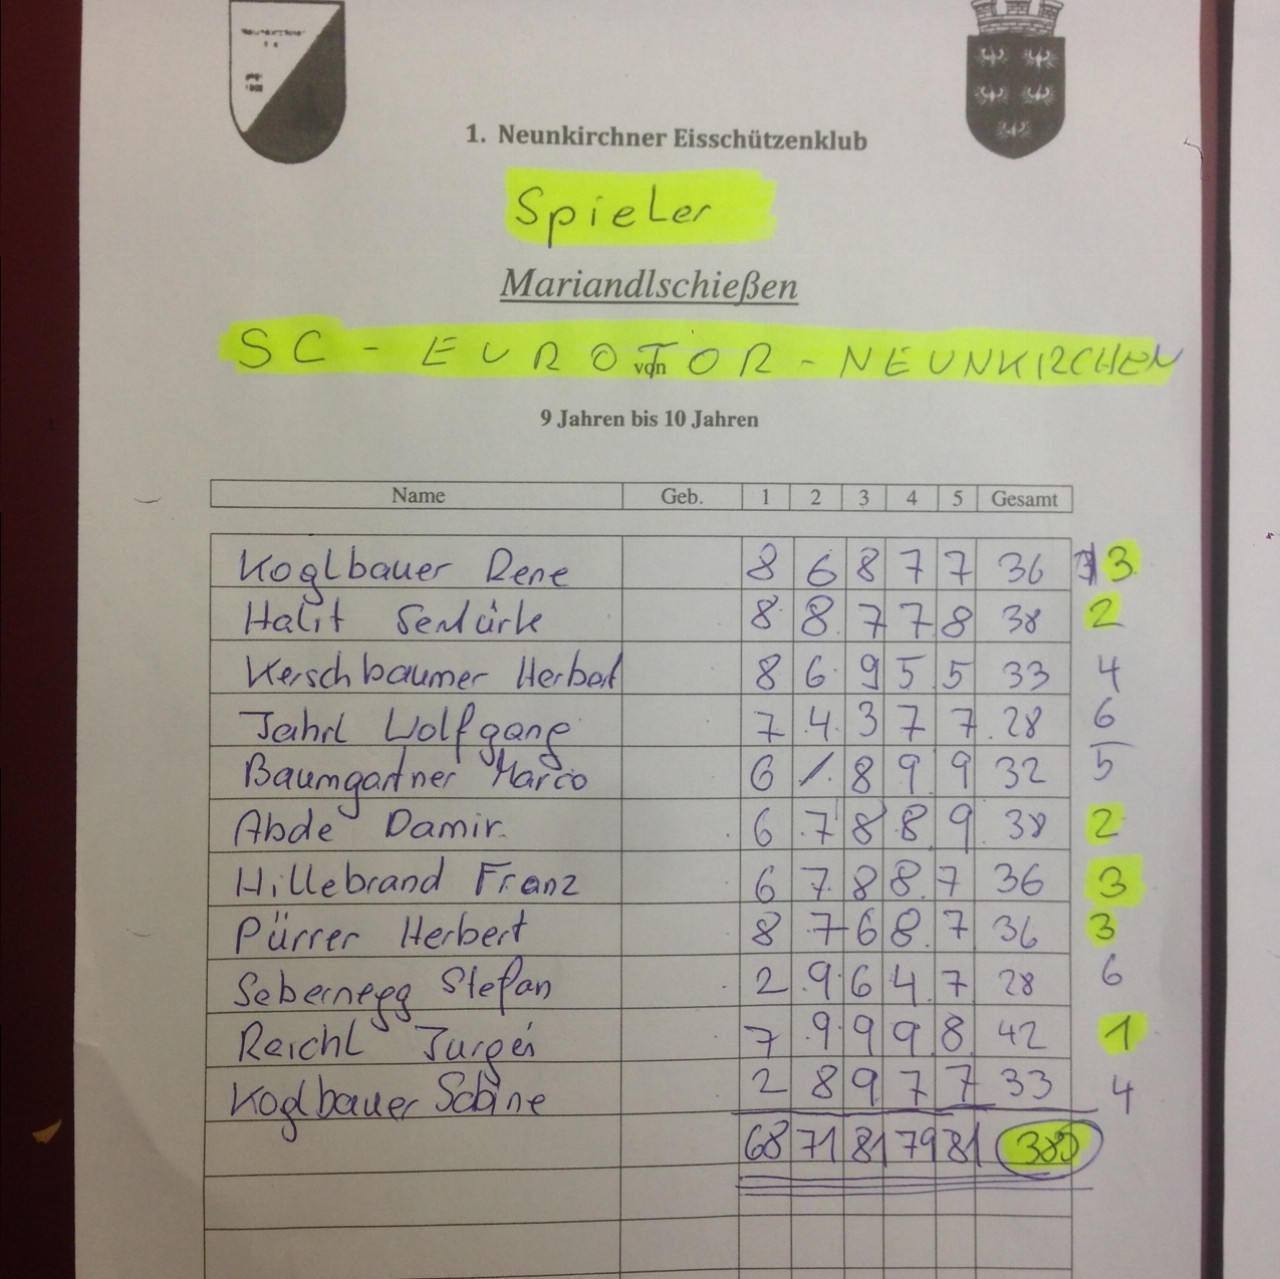 1. Neunkirchner Eisschützenklub
Spieler
Mariandlschießen
SC - EUROTOR - NEUNKIRCHEN
von
9 Jahren bis 10 Jahren
Name Geb. 1 2 3 4 5 Gesamt
Koglbauer Rene 8 6 8 7 7 36 3
Halit Sentürk 8 8 7 7 8 38 2
Kerschbaumer Herbert 8 6 9 5 5 33 4
Jahrl Wolfgang 7 4 3 7 7 28 6
Baumgartner Marco 6 / 8 9 9 32 5
Abde Damir 6 7 8 8 9 38 2
Hillebrand Franz 6 7 8 8 7 36 3
Pürrer Herbert 8 7 6 8 7 36 3
Sebernegg Stefan 2 9 6 4 7 28 6
Reichl Jürgen 7 9 9 9 8 42 1
Koglbauer Sabine 2 8 9 7 7 33 4
68 71 81 79 81 380